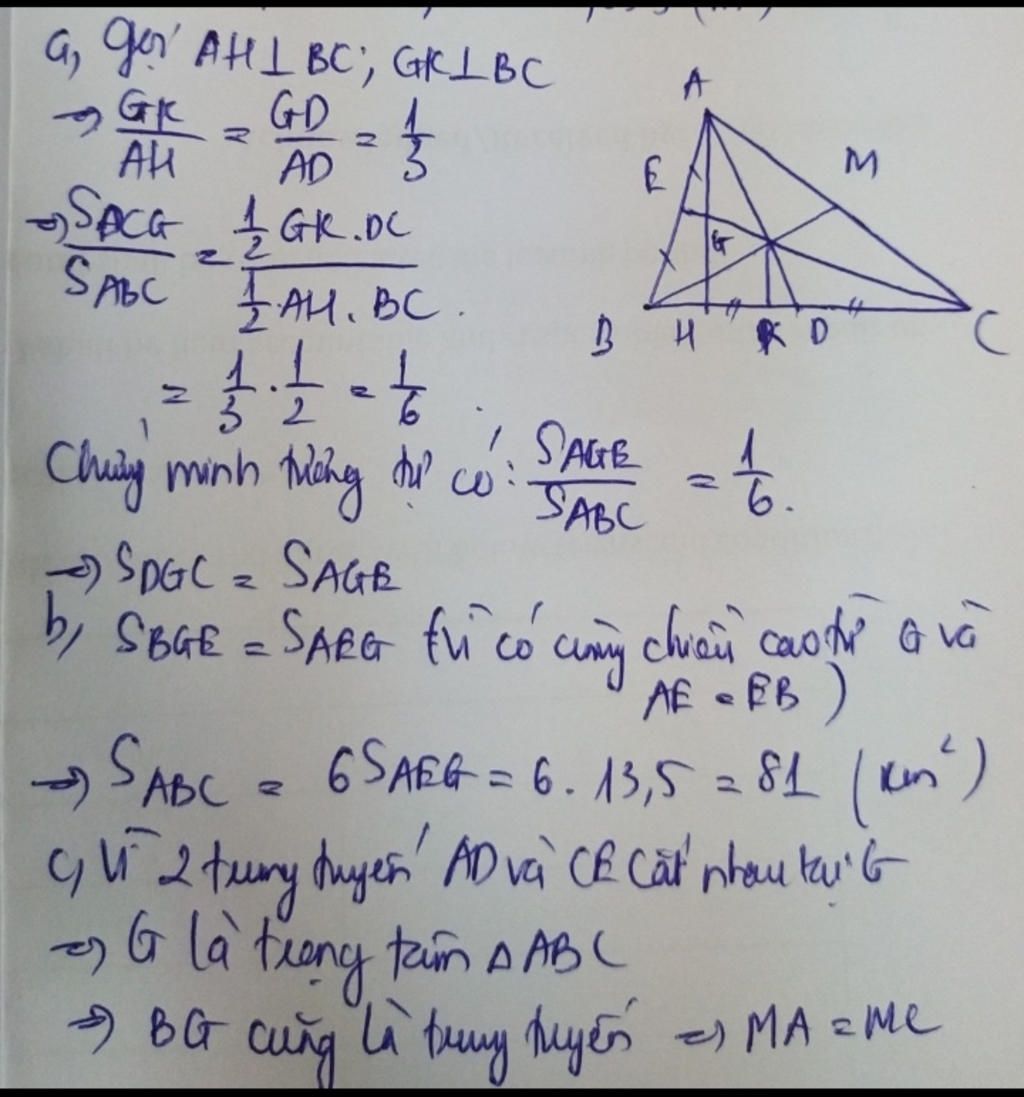 a, Gọi AH⊥BC; GK⊥BC
→ GK/AH = GD/AD = 1/3
→ S_DCG/S_ABC = (1/2 GK.DC)/(1/2.AH.BC).
= 1/3 . 1/2 = 1/6
Chứng minh tương tự có: S_AGE/S_ABC = 1/6.
→ S_DGC = S_AGE
b, S_BGE = S_AEG (vì có cùng chiều cao từ G và
AE = EB)
→ S_ABC = 6S_AEG = 6. 13,5 = 81 (cm²)
c, Vì 2 trung tuyến AD và CE cắt nhau tại G
→ G là trọng tâm △ABC
→ BG cũng là trung tuyến → MA = MC
A
E
M
G
B H K D C